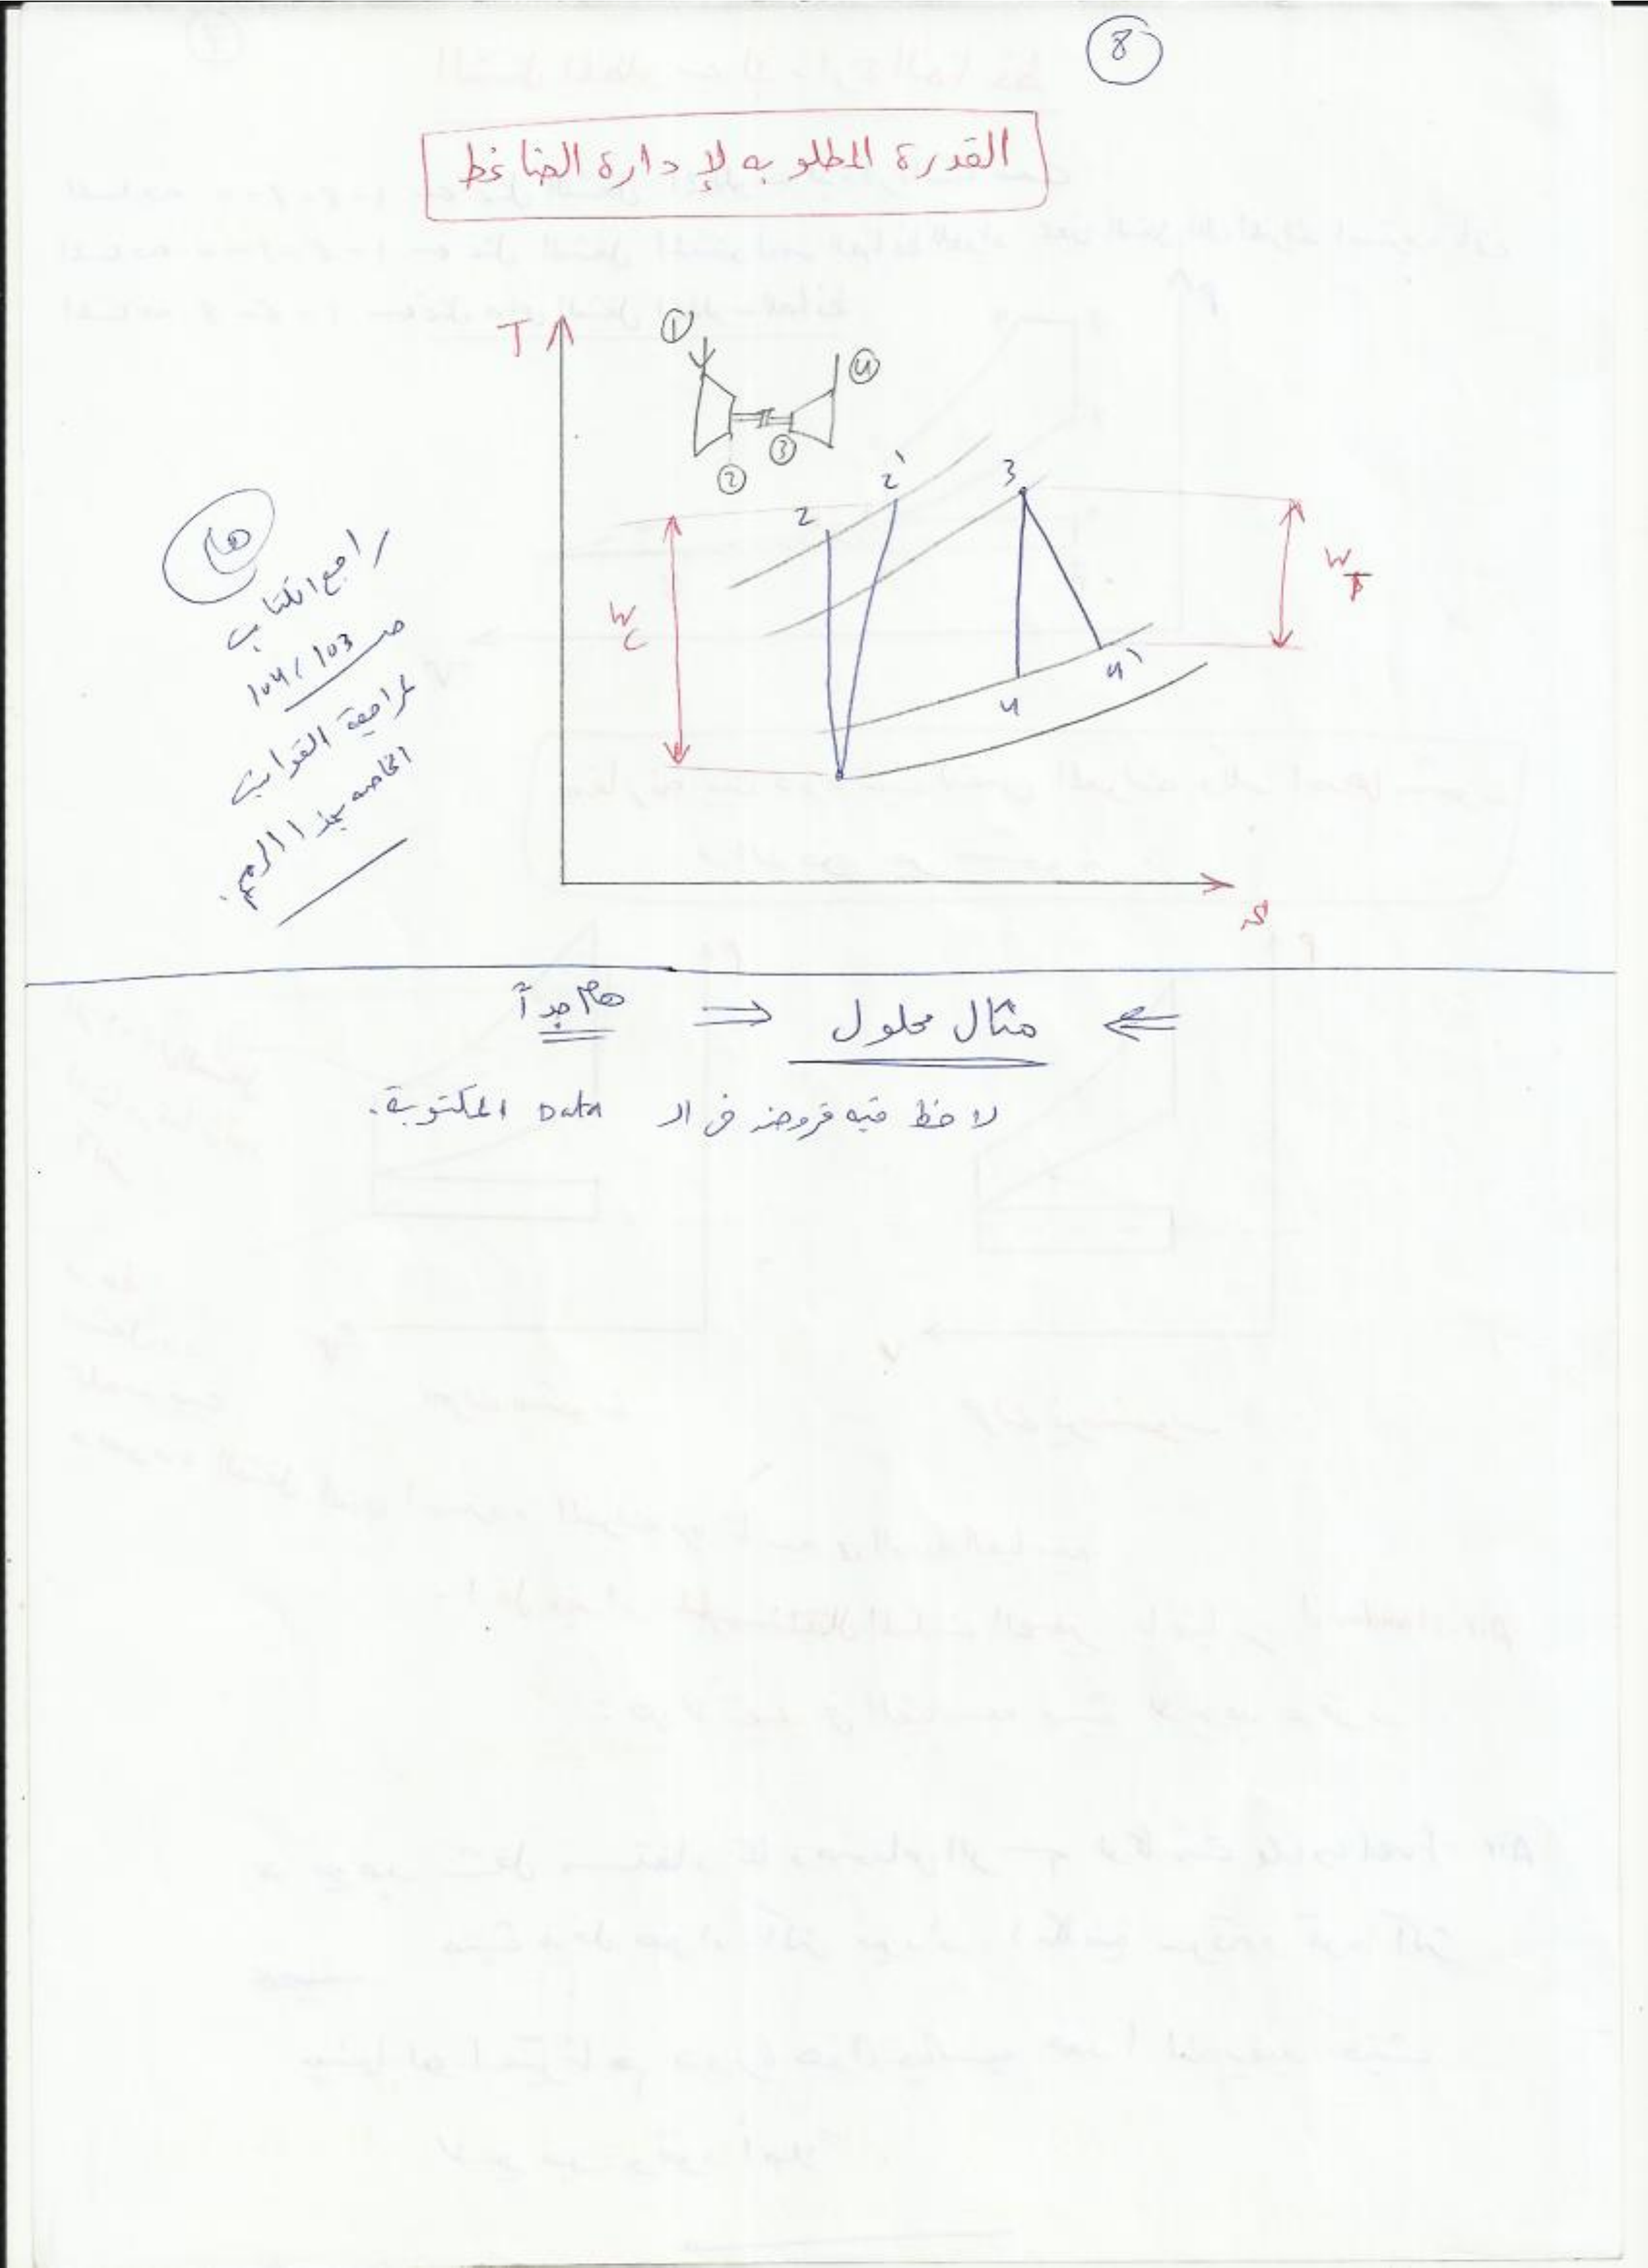 8
القدرة المطلوبه لإدارة الضاغط
T
1
4
3
2
2'
3
2
W
C
W
T
4'
4
S
هام
راجع الكتاب
صـ 103 / 104
لمراجعة القوانين
الخاصه بهذا الرسم.
مثال محلول ⇐ هام جداً
لاحظ فيه فروض فى الـ Data المكتوبة.